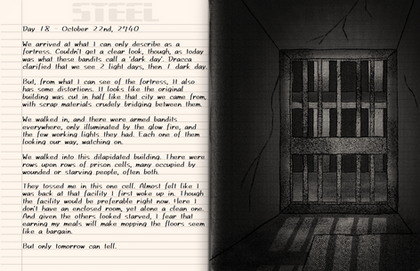 STEEL
Day 18 - October 22nd, 2940
We arrived at what I can only describe as a
fortress. Couldn't get a clear look, though, as today
was what these bandits call a 'dark day'. Dracca
clarified that we see 2 light days, then 1 dark day.
But, from what I can see of the fortress, it also
has some distortions. It looks like the original
building was cut in half like that city we came from,
with scrap materials crudely bridging between them.
We walked in, and there were armed bandits
everywhere, only illuminated by the glow, fire, and
the few working lights they had. Each one of them
looking our way, watching on.
We walked into this dilapidated building. There were
rows upon rows of prison cells, many occupied by
wounded or starving people, often both.
They tossed me in this one cell. Almost felt like I
was back at that facility I first woke up in. Though
the facility would be preferable right now. Here I
don't have an enclosed room, yet alone a clean one.
And given the others looked starved, I fear that
earning my meals will make mopping the floors seem
like a bargain.
But only tomorrow can tell.